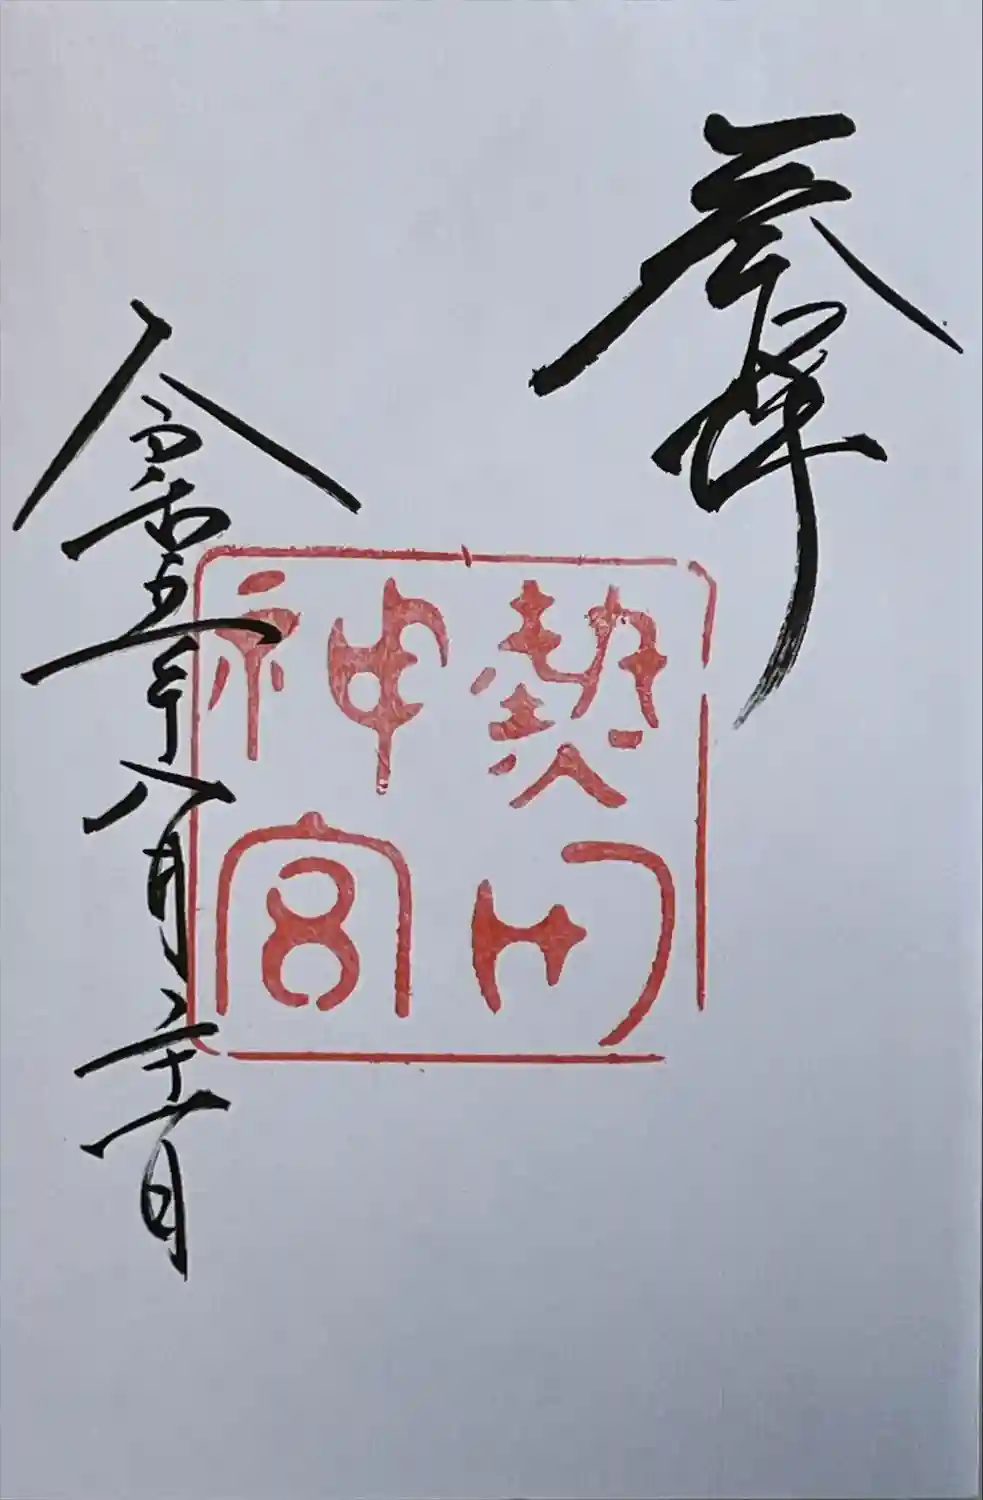 奉拝
熱田
神宮
令和五年八月二十一日